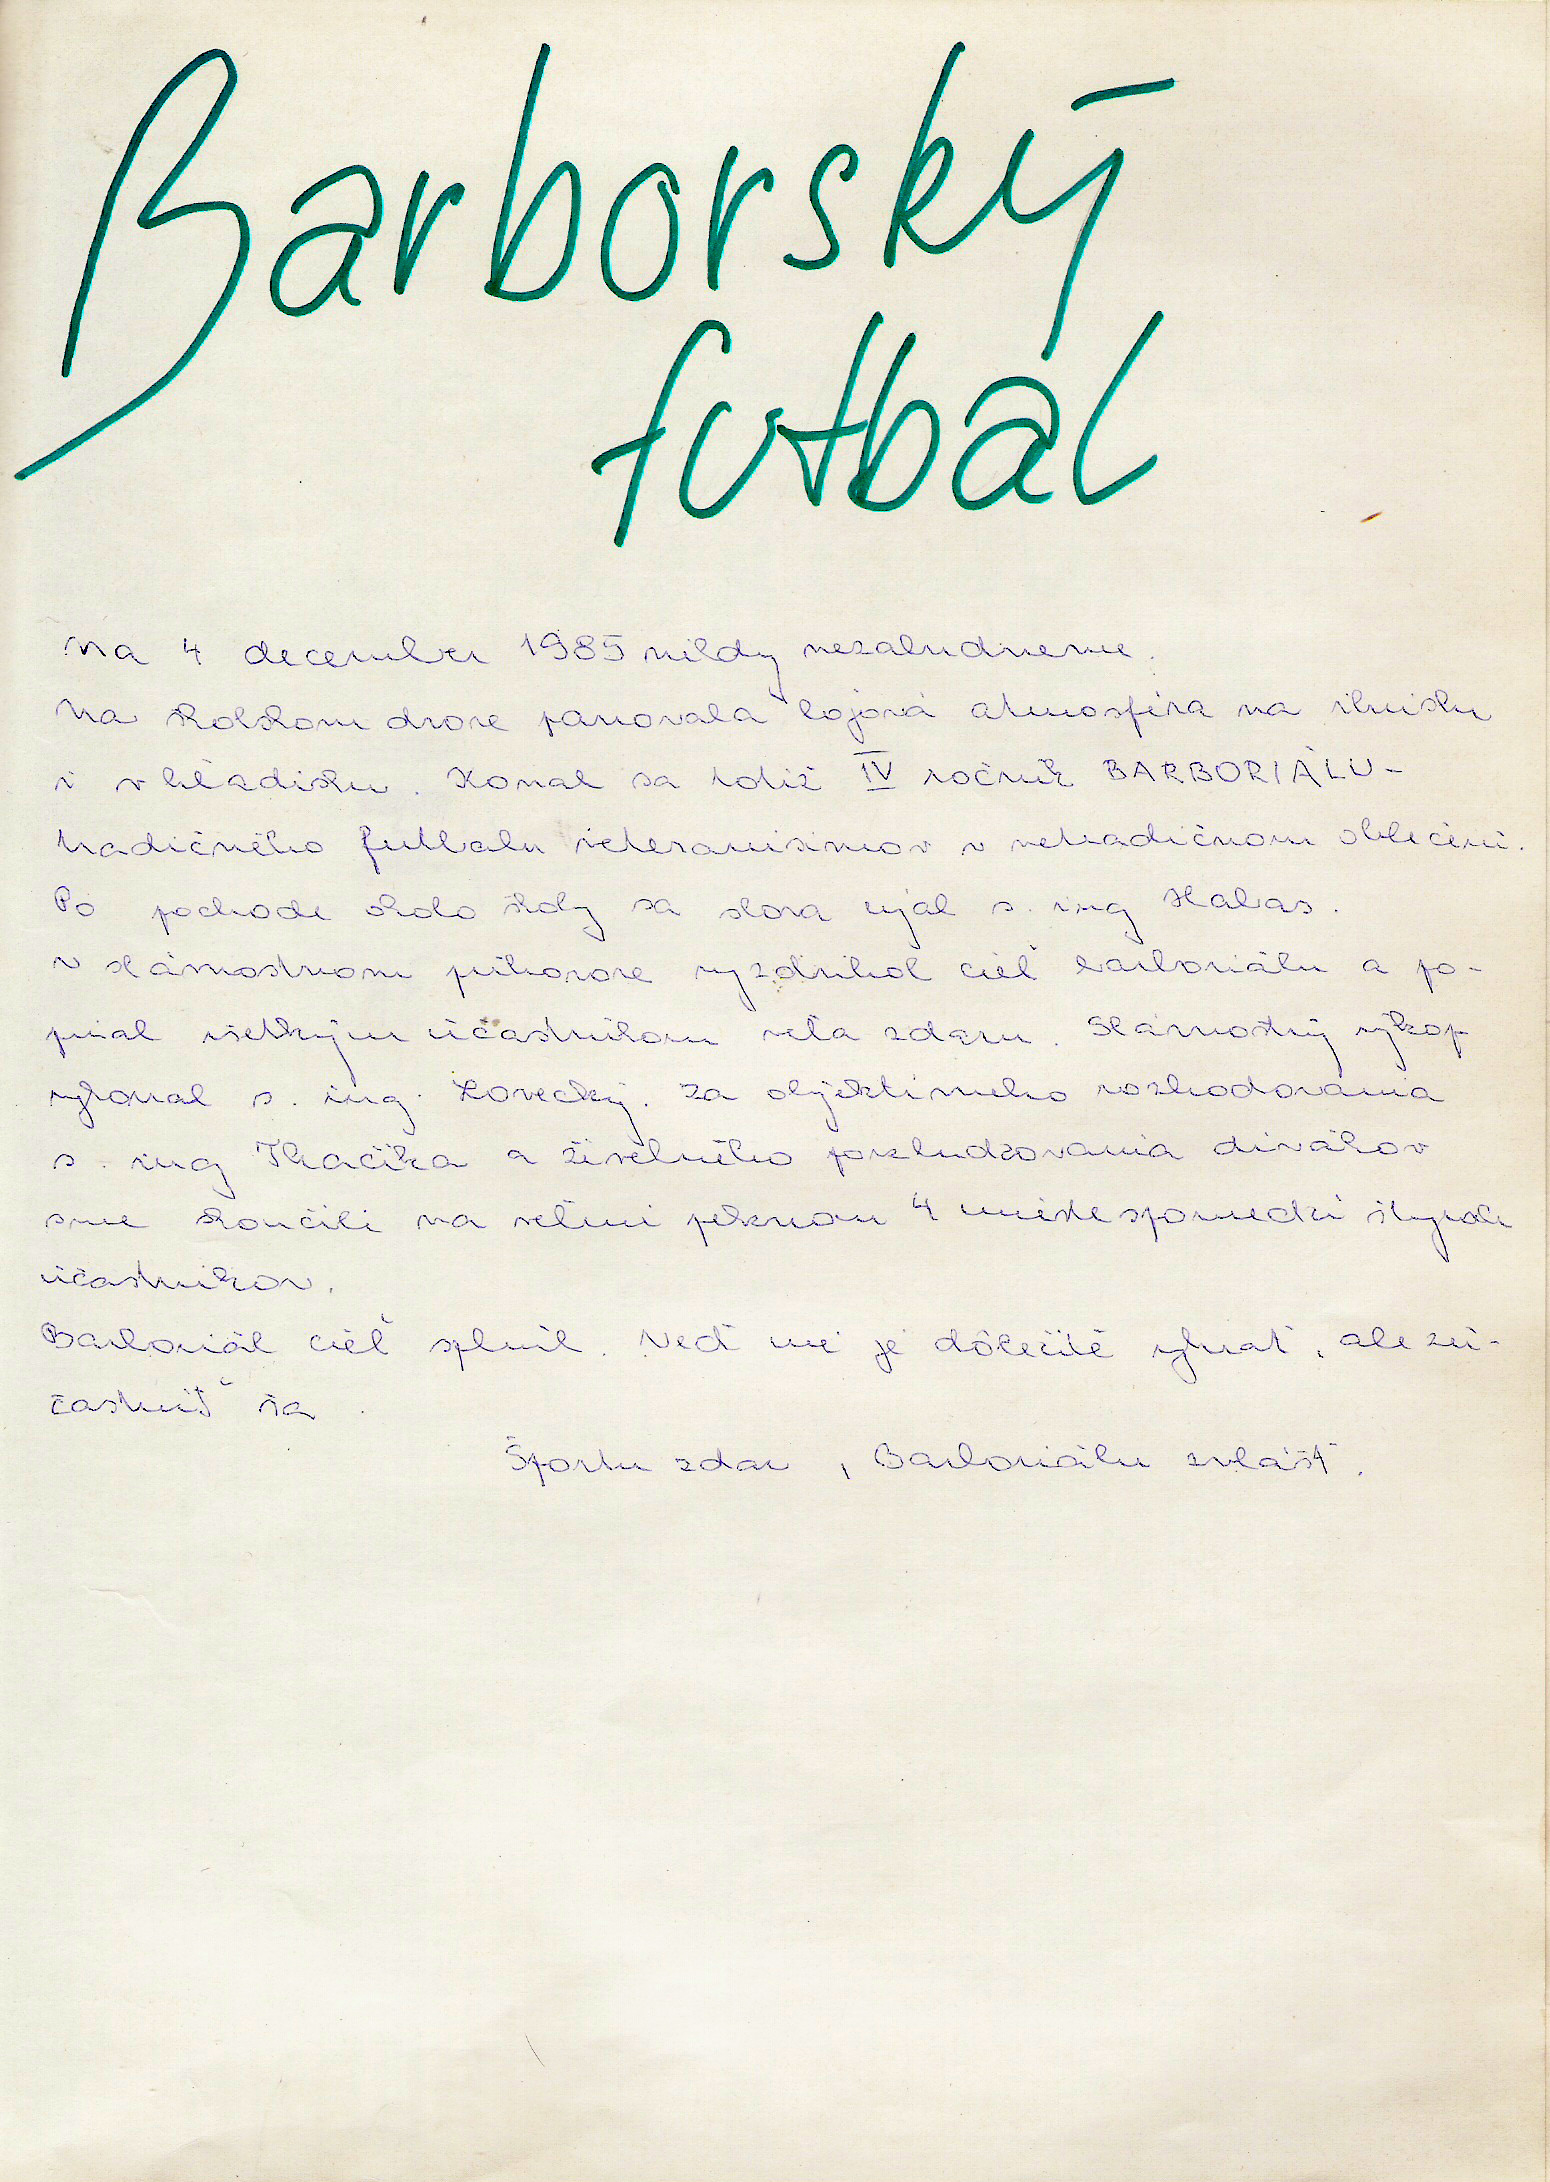 Barborský
futbal
Na 4 december 1985 nikdy nezabudneme.
Na školskom dvore panovala bojová atmosféra na ihrisku
i v hľadisku. Konal sa totiž IV ročník BARBORIÁLU-
tradičného futbalu veteranisimov v netradičnom oblečení.
Po pochode okolo školy sa slova ujal s. ing Halas.
V slávnostnom príhovore vyzdvihol cieľ barboriálu a po-
prial všetkým účastníkom veľa zdaru. Slávnostný výkop
vykonal s. ing. Lovecký. Za objektívneho rozhodovania
s. ing Tkáčika a živelného povzbudzovania divákov
sme skončili na veľmi peknom 4 mieste spomedzi štyroch
účastníkov.
Barboriál cieľ splnil. Veď nie je dôležité vyhrať, ale zú-
častniť sa.
Športu zdar, Barboriálu zvlášť.